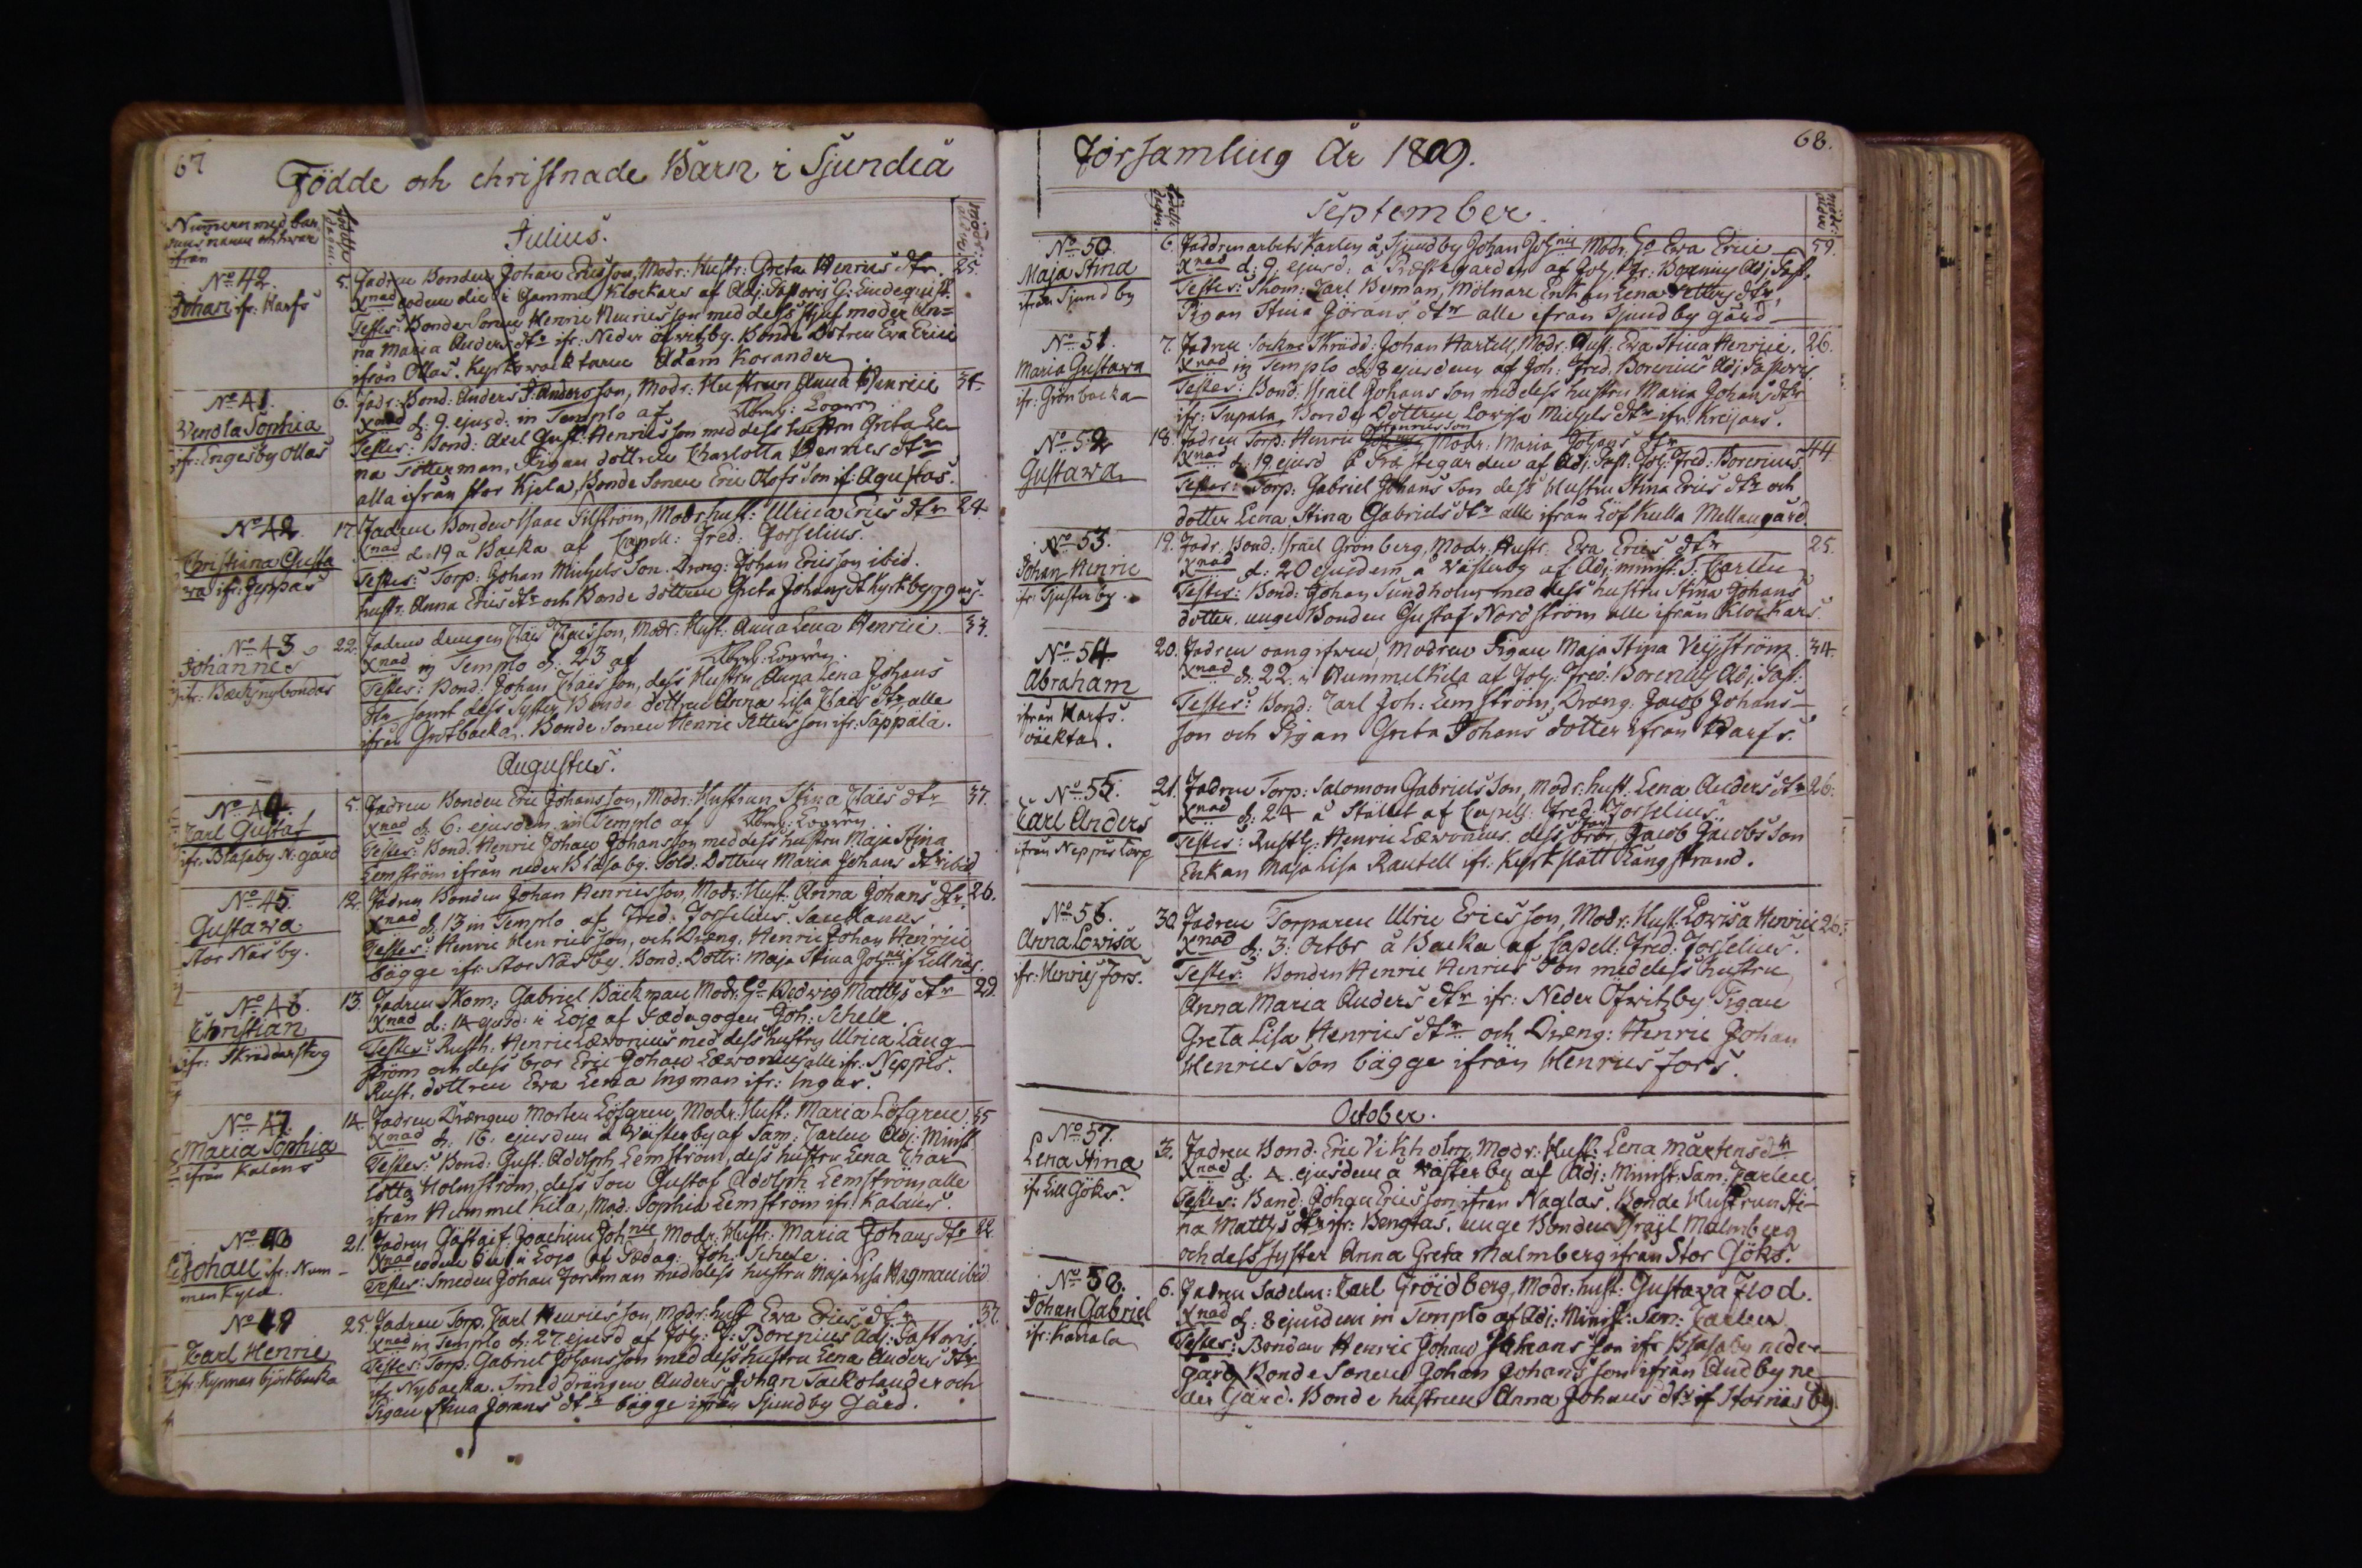 67
Födde och christnade Barn i Sjundeå
Numern med bar
nens namn och hwar
ifrån
Födelse
dagen.
Julius.
No 42.
Johan ifr: Harfs
5. Fadren Bonden Johan Ericsson, Modr: Hustr: Greta Henrics dtr. 25.
Xnad eodem die i Gammel Klockars af Adj: Pastoris G: Lindequist.
Testes: Bonde Sonen Henric Henricsson med dess stjufmoder An=
na Maria Anders dtr ifr: Neder öfwitzby. Bonde Dottren Eva Erici
ifrån Ollas. Kyrkowacktaren Adam Korander.
No 41.
Vendla Sophia
ifr: Engesby Ollas
6. Fadr: Bond: Anders Andersson, Modr: Hustrun Anna Henrici
Xnad d: 9. ejusd: in Templo af
Testes: Bond: Axel Gust: Henricsson med dess hustru Greta Le-
na Tötterman, Pigan dottren Charlotta Henrics dtr
alla ifrån stor Kjela, Bonde Sonen Eric Olofs Son if: Agustas.
No 42.
Christiana Gusta
va ifr: Jeppas
17. Fadren Bonden Isaac Silström, Modr: hust: Ulrica Erics dtr 24.
Xnad d: 19 å Backa af Capell: Fred: Forselius.
Testes: Torp: Johan Michels Son. Dreng: Johan Ericsson ibid.
hustr: Anna Erics dtr och Bonde dottren Greta Johans dtr
No 43
Johannes
ifr: Bäcks nybondas
22. Fadren drengen Claes Claesson, Modr: Hust: Anna Lena Henrici. 33.
Xnad in Templo d: 23 af
Testes: Bond: Johan Claesson, dess Hustru Anna Lena Johans
dtr samt dess Syster Bonde dottren Anna Lisa Claes dtr, alle
ifrån Grotbacka. Bonde Sonen Henric Pettersson ifr: Sappala.
Augustus.
No 44.
Carl Gustaf
ifr: Blåsaby N: gård
5. Fadren Bonden Eric Johansson, Modr: Hustrun Stina Claes dtr 37.
Xnad d: 6: ejusdem in Templo af
Testes: Bond: Henric Johan Johansson med dess hustru Maja Stina
Lemström ifrån neder Blåsaby. Sold: Dottren Maria Johans dtr ibid
No 45.
Gustawa
Stor Näsby.
12. Fadren Bonden Johan Henricsson, Modr: Hust: Anna Johans dtr. 26.
Xnad d: 13 in Templo af Fred: Forselius.
Testes: Henric Henricsson, och Dreng: Henric Johan Henrici
bägge ifr: Stor Näsby. Bond: Dottr: Maja Stina
No 46.
Christian
ifr: Skräddarskog
13. Fadren Skom: Gabriel Bäckman Modr: Hedwig Matths dtr 29.
Xnad d: 14 ejusd: i Lojo af Pædagogen Joh: Schele.
Testes: Rusth: Henric Læwonius med dess hustru Ulrica Lång
ström och dess bror Eric Johan Læwonius alle ifr: Neppes.
Rust. dottren Eva Lena Ingman ifr: Ingas.
No 47.
Maria Sophia
ifrån Kalans
14. Fadren Drengen Morten Löfgren, Modr: Hust: Maria Löfgren 35
Xnad d: 16: ejusdem å Wästerby af Sam: Carlen Adj: Minist
Testes: Bond: Gust: Adolph Lemström, dess hustru Lena Char
lotta Holmström, dess Son Gustaf Adolph Lemström, alle
ifrån Hummel Kila, Mad: Sophia Lemström ifr: Kalans.
No 48
Johan ifr: Num-
men Kylä.
21. Fadren Gästgif: Joachim Johnis Modr: Hustr: Maria Johans dtr 22.
Xnad eodem die i Lojo af Pædag: Joh: Schele.
Testes: Smeden Johan Forsman med dess hustru Maja Lisa Hagman ibid
No 49
Carl Henric
ifr: Kynnar björkbacka
25. Fadren Torp: Carl Henricsson, Modr: hust Eva Erics dtr 37.
Xnad in Templo d: 27. ejusd af Joh: F: Borenius Adj: Pastoris
Testes: Torp: Gabriel Johansson med dess hustru Lena Anders dtr
if: Nybacka. Smed drängen Anders Johan Sackslander och
Pigan Stina Jörans dtr bägge ifrån Sjundby Gård.
68.
Församling År 1809.
September.
Födelse
dagen.
No 50.
Maja Stina
ifrån Sjundby
6. Faddren arbets Karlen å Sjundby Johan Johnis Modr: Eva Erici 39.
Xnad d: 9. ejusd: å Prästegarden af Joh: Fr: Borenius Adj: Past.
Testes: Thom: Carl Byman, Mölnare Enkan Lena Petters dtr,
Pigan Stina Görans dtr alle ifrån Sjundby gård
No 51.
Maria Gustava
ifr: Grönbacka
7. Fadren Sockne Skrädd: Johan Hartell, Modr: Hust: Eva Stina Henrici. 26.
Xnad in Templo d: 8 ejusdem af Joh: Fred: Borenius Adj: Pastoris
Testes: Bond: Israël Johans Son med dess hustru Maria Johans dtr
ifr: Tupala. Bonde Dottren Lowisa Michels dtr ifr: Kreijars.
No 52
Gustawa
18. Fadren Torp: Henric Henricsson Modr: Maria Johans dtr 44
Xnad d: 19 ejusd å Prästegarden af Adj: Past: Joh: Fred: Borenius
Testes: Torp: Gabriel Johans Son dess Hustru Stina Erics dtr och
dotter Lena Stina Gabriels dtr alle ifrån Löfkulla Mellangård.
No 53.
Johan Henric
ifr: Tjusterby.
19. Fadr: Bond: Israël Grönberg, Modr: Hustr: Eva Erics dtr 25.
Xnad d: 20 ejusdem å Wästerby af Adj: minist: S. Carlen
Testes: Bond: Johan Sundholm med dess hustru Stina Johans
dotter, unge Bonden Gustaf Nordström alle ifrån Klockars
No 54.
Abraham
ifrån Harfs
väcktar.
20. Fadren oangifwen, Modren Pigan Maja Stina Veijström. 34.
Xnad d: 22. i Hummelkila af Joh: Fred: Borenius Adj: Past:
Testes: Bond: Carl Joh: Lemström, Dreng: Jacob Johans-
son och Pigan Greta Johans dotter ifrån Harfs.
No 55.
Carl Anders
ifrån Neppis torp
21. Fadren Torp: Salomon Gabriels Son, Modr: hust: Lena Anders dtr 26.
Xnad d: 24 å Stället af Capell: Fred: Forselius.
Testes: Rusth: Henric Læwonius. dess bror Jacob Jacobsson
Enkan Maja Lisa Rautell ifr: Kyrkslätt Långstrand.
No 56.
Anna Lovisa
ifr: Henricsfors.
30. Fadren Torparen Ulric Ericsson, Modr: Hust: Lovisa Henrici 26.
Xnad d: 3: Octbr å Backa af Capell: Fred: Forselius.
Testes: Bonden Henric Henrics Son med dess hustru
Anna Maria Anders dtr ifr: Neder Ofwitzby Pigan
Greta Lisa Henrics dtr och Dreng: Henric Johan
Henricsson bägge ifrån Henricsfors.
October.
No 57.
Lena Stina
ifr Lill Göks.
3. Fadren Bond: Eric Vikholm, Modr: Hust: Lena Mårtens dtr
Xnad d: 4. ejusdem å Wästerby af Adj: Minist: Sam: Carlen.
Testes: Bond: Johan Ericsson ifrån Naglas. Bonde Hustrun Sti-
na Matths dtr ifr: Bengtas. unge Bonden Israël Malmberg
och dess syster Anna Greta Malmberg ifrån Stor Göks.
No 58.
Johan Gabriel
ifr: Kanala
6. Fadren Sadelm: Carl Fröidberg, Modr: hust: Gustava Flod.
Xnad d: 8 ejusdem in Templo af Adj: Minist: Sam: Carlen.
Testes: Bonden Henric Johan Johans Son ifr Blåsaby neder
gård Bonde Sonen Johan Johansson ifrån Andby ne
der Gård. Bonde hustrun Anna Johans dtr if Stornäsby